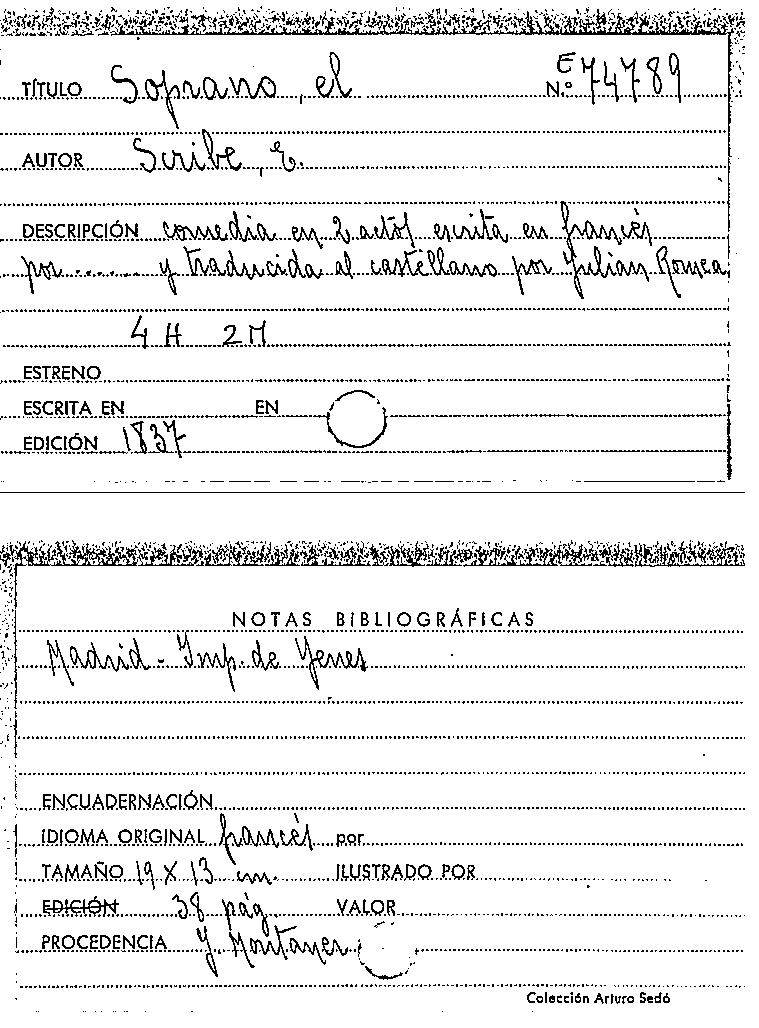 TÍTULO Soprano, el N.º E 74789
AUTOR Scribe, E.
DESCRIPCIÓN comedia en 2 actos escrita en francés
por ........ y traducida al castellano por Julian Romea
4 H 2 M
ESTRENO
ESCRITA EN EN
EDICIÓN 1837
NOTAS BIBLIOGRÁFICAS
Madrid - Imp. de Yenes
ENCUADERNACIÓN
IDIOMA ORIGINAL francés por
TAMAÑO 19 X 13 cm. ILUSTRADO POR
EDICIÓN 38 pág. VALOR
PROCEDENCIA Y. Montaner
Colección Arturo Sedó